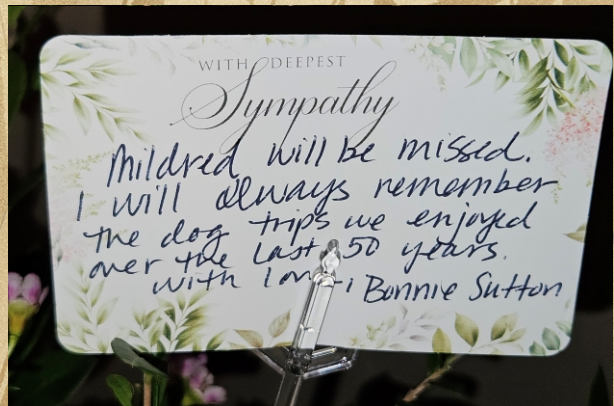 WITH DEEPEST
Sympathy
Mildred will be missed.
I will always remember
the dog trips we enjoyed
over the last 50 years.
with Bonnie Sutton